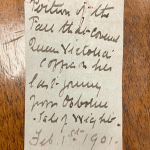 Portion of the
Pall that covered
Queen Victoria's
coffin on her
last journey
from Osborne
Isle of Wight.
Feb. 1st 1901.